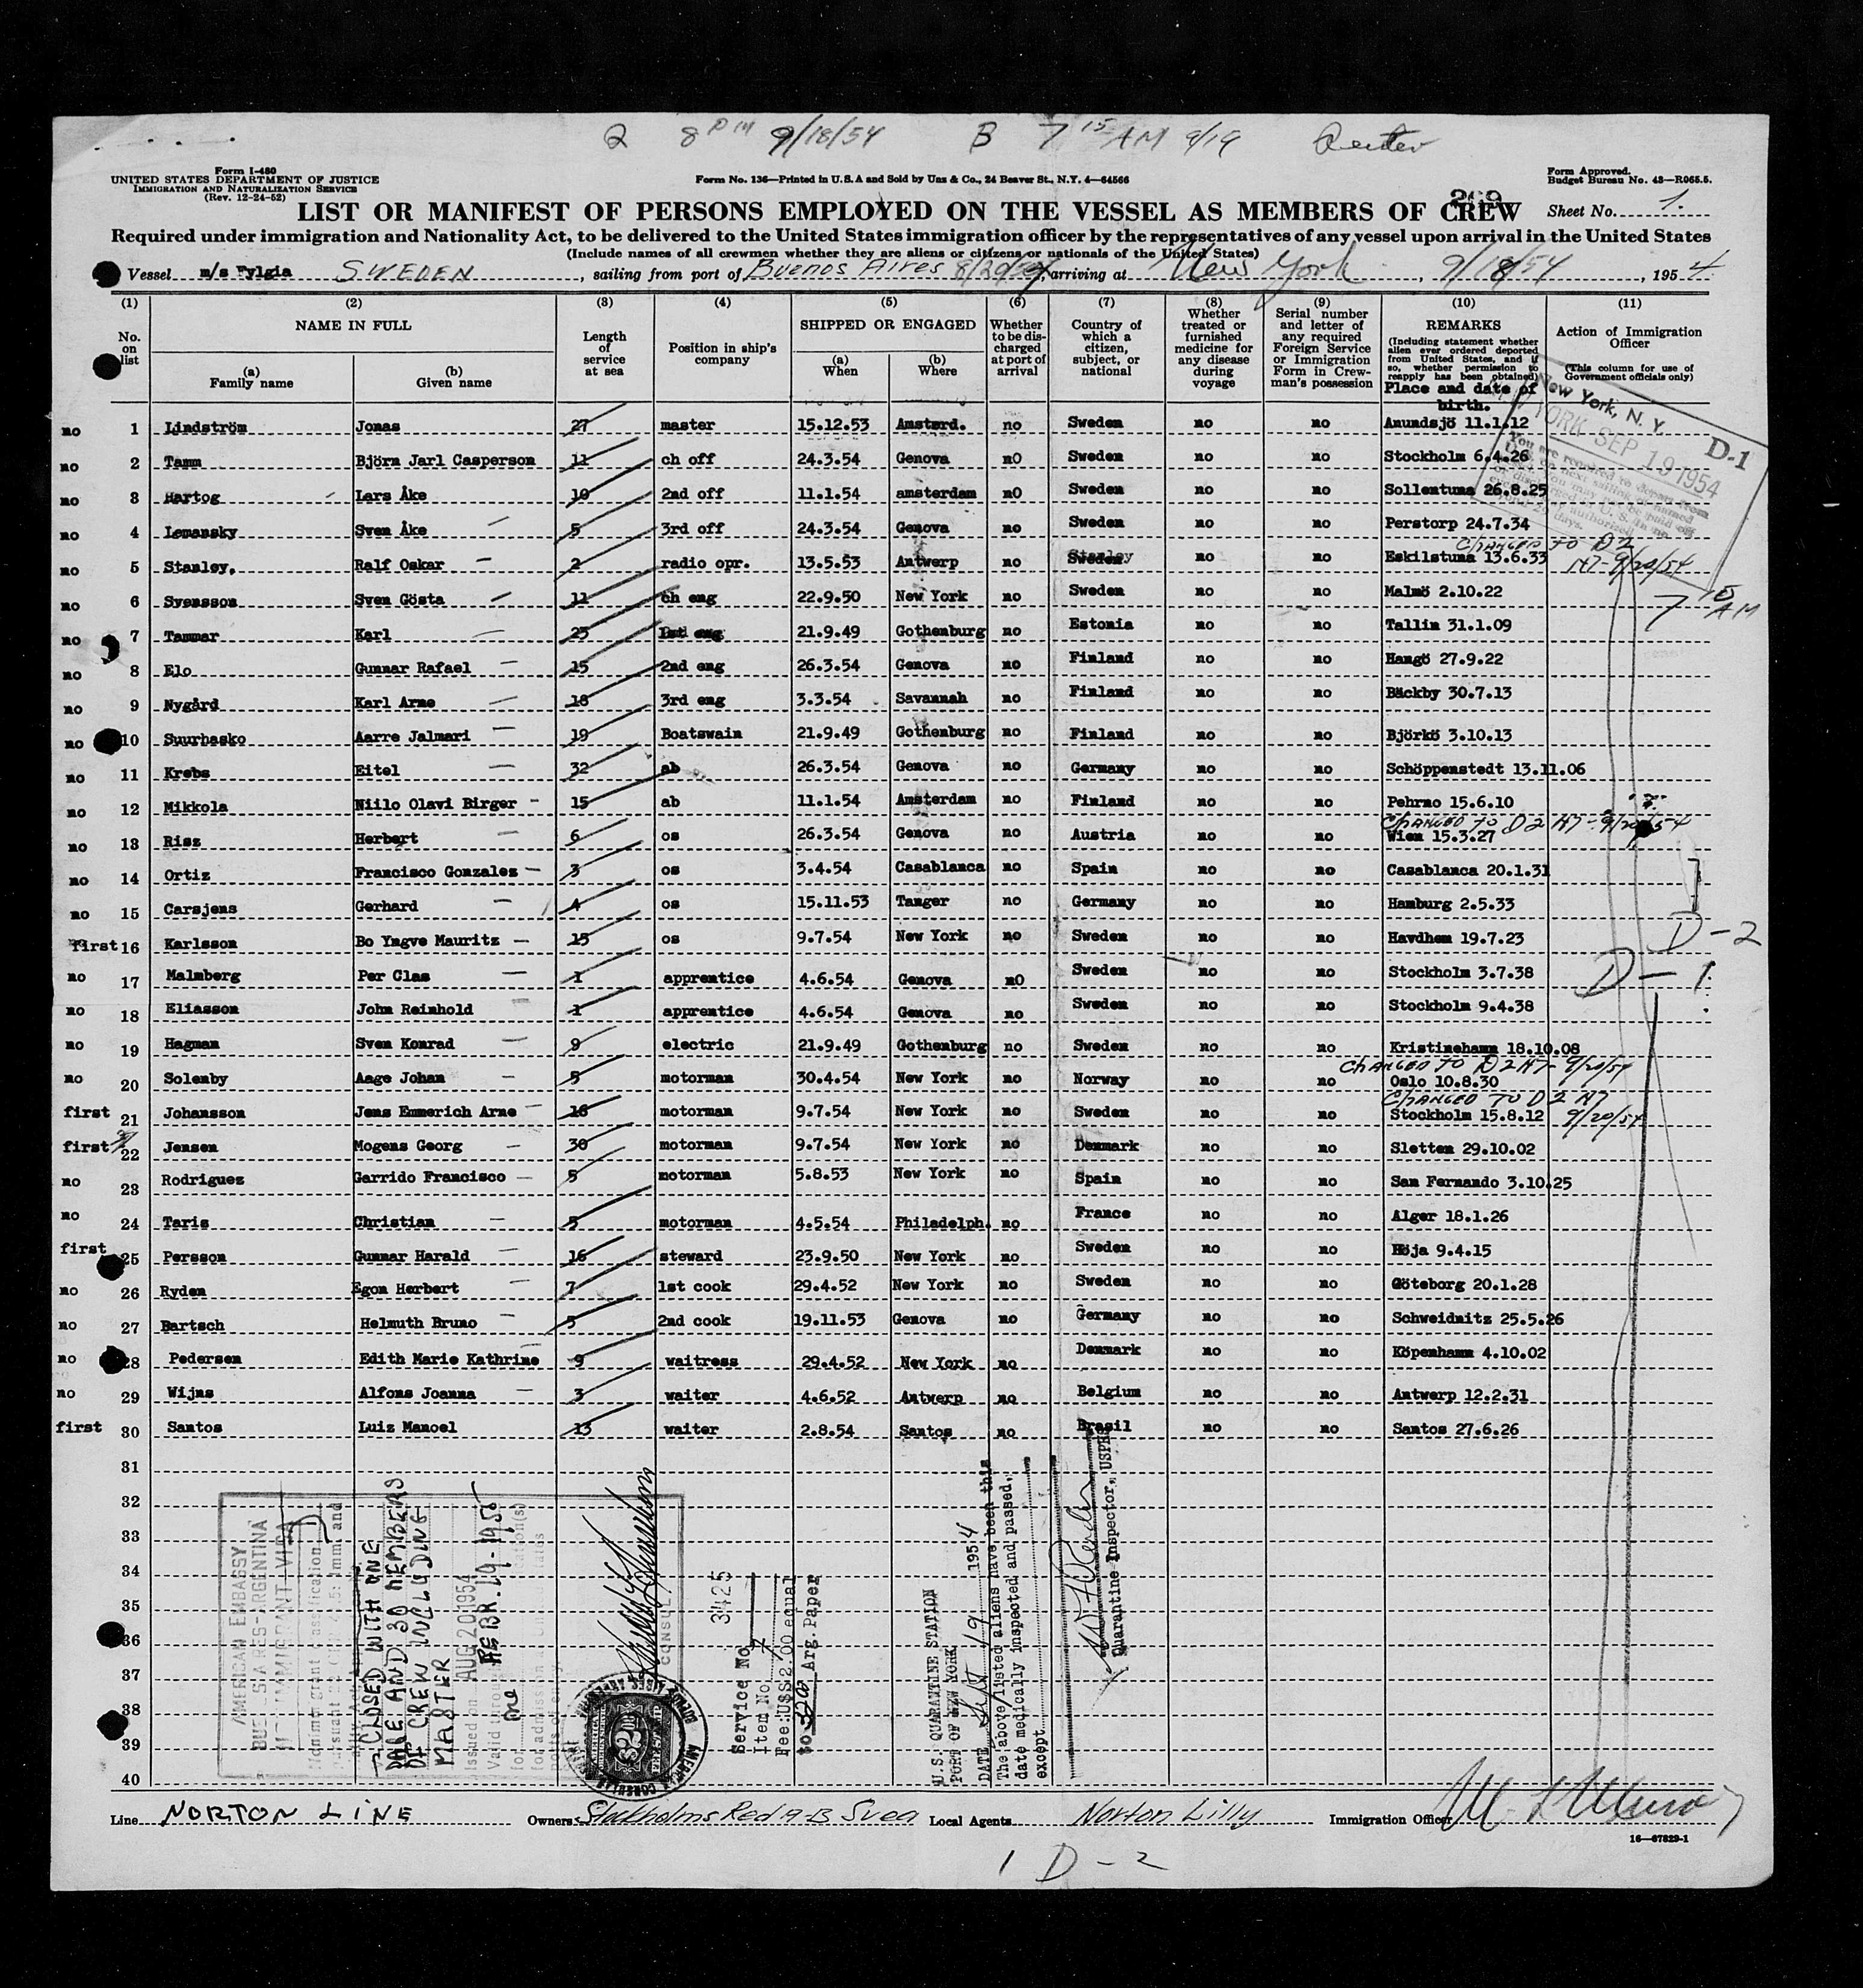 Q 8 PM 9/18/54 B 7 15 AM 9/19
Form I-480
UNITED STATES DEPARTMENT OF JUSTICE
IMMIGRATION AND NATURALIZATION SERVICE
(Rev. 12-24-52)
Form No. 136—Printed in U.S.A and Sold by Unz & Co., 24 Beaver St., N.Y. 4—64566
Form Approved.
Budget Bureau No. 43—R065.5.
269
LIST OR MANIFEST OF PERSONS EMPLOYED ON THE VESSEL AS MEMBERS OF CREW Sheet No. 1.
Required under immigration and Nationality Act, to be delivered to the United States immigration officer by the representatives of any vessel upon arrival in the United States
(Include names of all crewmen whether they are aliens or citizens or nationals of the United States)
Vessel m/s Fylgia SWEDEN, sailing from port of Buenos Aires 8/20/54, arriving at New York, 9/18/54, 195 4
(1) (2) (3) (4) (5) (6) (7) (8) (9) (10) (11)
No. on list
NAME IN FULL
(a) Family name
(b) Given name
Length of service at sea
Position in ship's company
SHIPPED OR ENGAGED
(a) When
(b) Where
Whether to be discharged at port of arrival
Country of which a citizen, subject, or national
Whether treated or furnished medicine for any disease during voyage
Serial number and letter of any required Foreign Service or Immigration Form in Crewman's possession
REMARKS
(Including statement whether alien ever ordered deported from United States, and if so, whether permission to reapply has been obtained)
Place and date of birth.
Action of Immigration Officer
(This column for use of Government officials only)
New York, N. Y. D-1
NEW YORK SEP 19 1954
no 1 Lindström Jonas 27 master 15.12.53 Amsterd. no Sweden no no Anundsjö 11.1.12
no 2 Tamm Björn Jarl Casperson 11 ch off 24.3.54 Genova nO Sweden no no Stockholm 6.4.26
no 3 Hartog Lars Åke 10 2nd off 11.1.54 amsterdam nO Sweden no no Sollentuna 26.8.25
no 4 Lemansky Sven Åke 5 3rd off 24.3.54 Genova no Sweden no no Perstorp 24.7.34
CHANGED TO D2
no 5 Stanley, Ralf Oskar 2 radio opr. 13.5.53 Antwerp no Sweden no no Eskilstuna 13.6.33 9/20/54
no 6 Svensson Sven Gösta 11 ch eng 22.9.50 New York no Sweden no no Malmö 2.10.22 7 15 AM
no 7 Tammar Karl 23 1st eng 21.9.49 Gothenburg no Estonia no no Tallin 31.1.09
no 8 Elo Gunnar Rafael 15 2nd eng 26.3.54 Genova no Finland no no Hangö 27.9.22
no 9 Nygård Karl Arne 18 3rd eng 3.3.54 Savannah no Finland no no Bäckby 30.7.13
no 10 Suurhasko Aarre Jalmari 19 Boatswain 21.9.49 Gothenburg no Finland no no Björkö 3.10.13
no 11 Krebs Eitel 32 ab 26.3.54 Genova no Germany no no Schöppenstedt 13.11.06
no 12 Mikkola Niilo Olavi Birger 15 ab 11.1.54 Amsterdam no Finland no no Pehrno 15.6.10
CHANGED TO D2 9/20/54
no 13 Risz Herbert 6 os 26.3.54 Genova no Austria no no Wien 15.3.27
no 14 Ortiz Francisco Gonzales 3 os 3.4.54 Casablanca no Spain no no Casablanca 20.1.31
no 15 Carsjens Gerhard 4 os 15.11.53 Tanger no Germany no no Hamburg 2.5.33
first 16 Karlsson Bo Yngve Mauritz 15 os 9.7.54 New York no Sweden no no Havdhem 19.7.23 D-2
no 17 Malmberg Per Clas 1 apprentice 4.6.54 Genova nO Sweden no no Stockholm 3.7.38 D-1
no 18 Eliasson John Reinhold 1 apprentice 4.6.54 Genova no Sweden no no Stockholm 9.4.38
no 19 Hagman Sven Konrad 9 electric 21.9.49 Gothenburg no Sweden no no Kristinehamn 18.10.08
CHANGED TO D2 9/20/54
no 20 Solenby Aage Johan 5 motorman 30.4.54 New York no Norway no no Oslo 10.8.30
CHANGED TO D2
first 21 Johansson Jens Emmerich Arne 16 motorman 9.7.54 New York no Sweden no no Stockholm 15.8.12 9/20/54
first 22 Jensen Mogens Georg 30 motorman 9.7.54 New York no Denmark no no Sletten 29.10.02
no 23 Rodriguez Garrido Francisco 5 motorman 5.8.53 New York no Spain no no San Fernando 3.10.25
no 24 Taris Christian 5 motorman 4.5.54 Philadelph. no France no no Alger 18.1.26
first 25 Persson Gunnar Harald 16 steward 23.9.50 New York no Sweden no no Höja 9.4.15
no 26 Ryden Egon Herbert 7 1st cook 29.4.52 New York no Sweden no no Göteborg 20.1.28
no 27 Bartsch Helmuth Bruno 5 2nd cook 19.11.53 Genova no Germany no no Schweidnitz 25.5.26
no 28 Pedersen Edith Marie Kathrine 9 waitress 29.4.52 New York no Denmark no no Köpenhamn 4.10.02
no 29 Wijns Alfons Joanna 3 waiter 4.6.52 Antwerp no Belgium no no Antwerp 12.2.31
first 30 Santos Luiz Manoel 13 waiter 2.8.54 Santos no Brasil no no Santos 27.6.26
31
32
33
34
35
36
37
38
39
40
AMERICAN EMBASSY
BUENOS AIRES ARGENTINA
CLOSED WITH ONE
PAGE AND 30 MEMBERS
OF CREW INCLUDING
MASTER
Issued on AUG 20 1954
FEBR. 19-1955
one
CONSUL
Service No. 3425
Item No. 7
Fee: U$S2.00 equal
to Arg. Paper
U.S. QUARANTINE STATION
PORT OF NEW YORK
DATE Sept 19 1954
The above listed aliens have been this
date medically inspected and passed,
except
Quarantine Inspector, USPHS
Line NORTON LINE Owners Stockholms Red A-B Svea Local Agents Norton Lilly Immigration Officer
16—67829-1
1 D-2